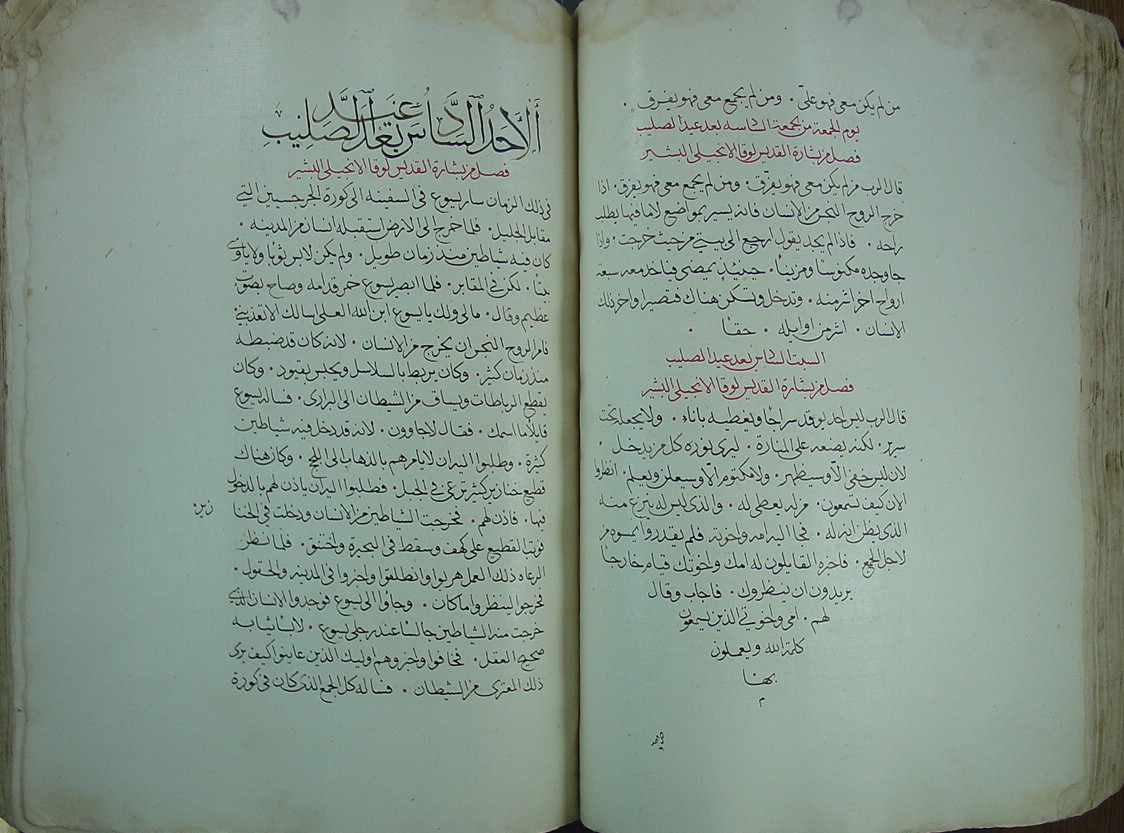 من لم يكن معي فهو علي • ومن لم يجمع معي فهو يفرق •
يوم الجمعة من الجمعة السادسه بعد عيد الصليب
فصل من بشارة القديس لوقا الانجيلي البشير
قال الرب من لم يكن معي فهو يفرق • ومن لم يجمع معي فهو يفرق • اذا
خرج الروح النجس من الانسان فانه يسير بمواضع لا ما فيها يطلب
راحه • فاذا لم يجد يقول ارجع الى بيتي من حيث خرجت • واذا
جا وجده مكنوسا ومزينا • حينيذ يمضي فياخذ معه سبعة
ارواح اخر اشر منه • وتدخل وتسكن هناك فتصير اواخر ذلك
الانسان • اشر من اوايله • حقا •
السبت السادس بعد عيد الصليب
فصل من بشارة القديس لوقا الانجيلي البشير
قال الرب ليس احد يوقد سراجا ويغطيه باناء • ولا يجعله تحت
سرير • لكنه يضعه على المنارة • ليرى نوره كل من يدخل •
لان ليس خفي الا وسيظهر • ولا مكتوم الا وسيعلن ويعلم • انظروا
الان كيف تسمعون • من له يعطى له • والذي ليس له ينتزع منه
الذي يظن انه له • فجا اليه امه واخوته • فلم يقدروا
لاجل الجمع • فاخبره القايلون له امك واخوتك قيام خارجا
يريدون ان ينظروك • فاجاب وقال
لهم • امي واخوتي الذين يسمعون
كلمة الله ويعملون
بها
م
الاحد السادس بعد عيد الصليب
فصل من بشارة القديس لوقا الانجيلي البشير
في ذلك الزمان سار يسوع في السفينه الى كورة الجرجسيين التي
مقابل الجليل • فلما خرج الى الارض استقبله انسان من المدينه •
كان فيه شياطين منذ زمان طويل • ولم يكن لابس ثوبا ولا ياوي
بيتا • لكن في المقابر • فلما ابصر يسوع خر قدامه وصاح بصوت
عظيم وقال • مالي ولك يا يسوع ابن الله العلي اسالك الا تعذبني •
فامر الروح النجس ان يخرج من الانسان • لانه كان قد ضبطه
منذ زمان كثير • وكان يربط بالسلاسل ويحبس بقيود • وكان
يقطع الرباطات ويساق من الشيطان الى البراري • فساله يسوع
قايلا ما اسمك • فقال لاجاوون • لانه قد دخل فيه شياطين
كثيرة • وطلبوا اليه ان لا يامرهم بالذهاب الى اللجج • وكان هناك
قطيع خنازير كثير ترعى في الجبل • فطلبوا اليه ان ياذن لهم بالدخول
فيها • فاذن لهم • فخرجت الشياطين من الانسان ودخلت في الخنا
زير •
فوثب القطيع على كهف وسقط في البحيرة واختنق • فلما نظر
الرعاه ذلك العمل هربوا وانطلقوا واخبروا في المدينه والحقول •
فخرجوا لينظروا ما كان • وجاوا الى يسوع فوجدوا الانسان الذي
خرجت منه الشياطين جالسا عند رجلي يسوع • لابسا ثيابه
صحيح العقل • فخافوا واخبروهم اوليك الذين عاينوا كيف برى
ذلك المعترى من الشيطان • فساله كل الجمع الذي كان في كورة